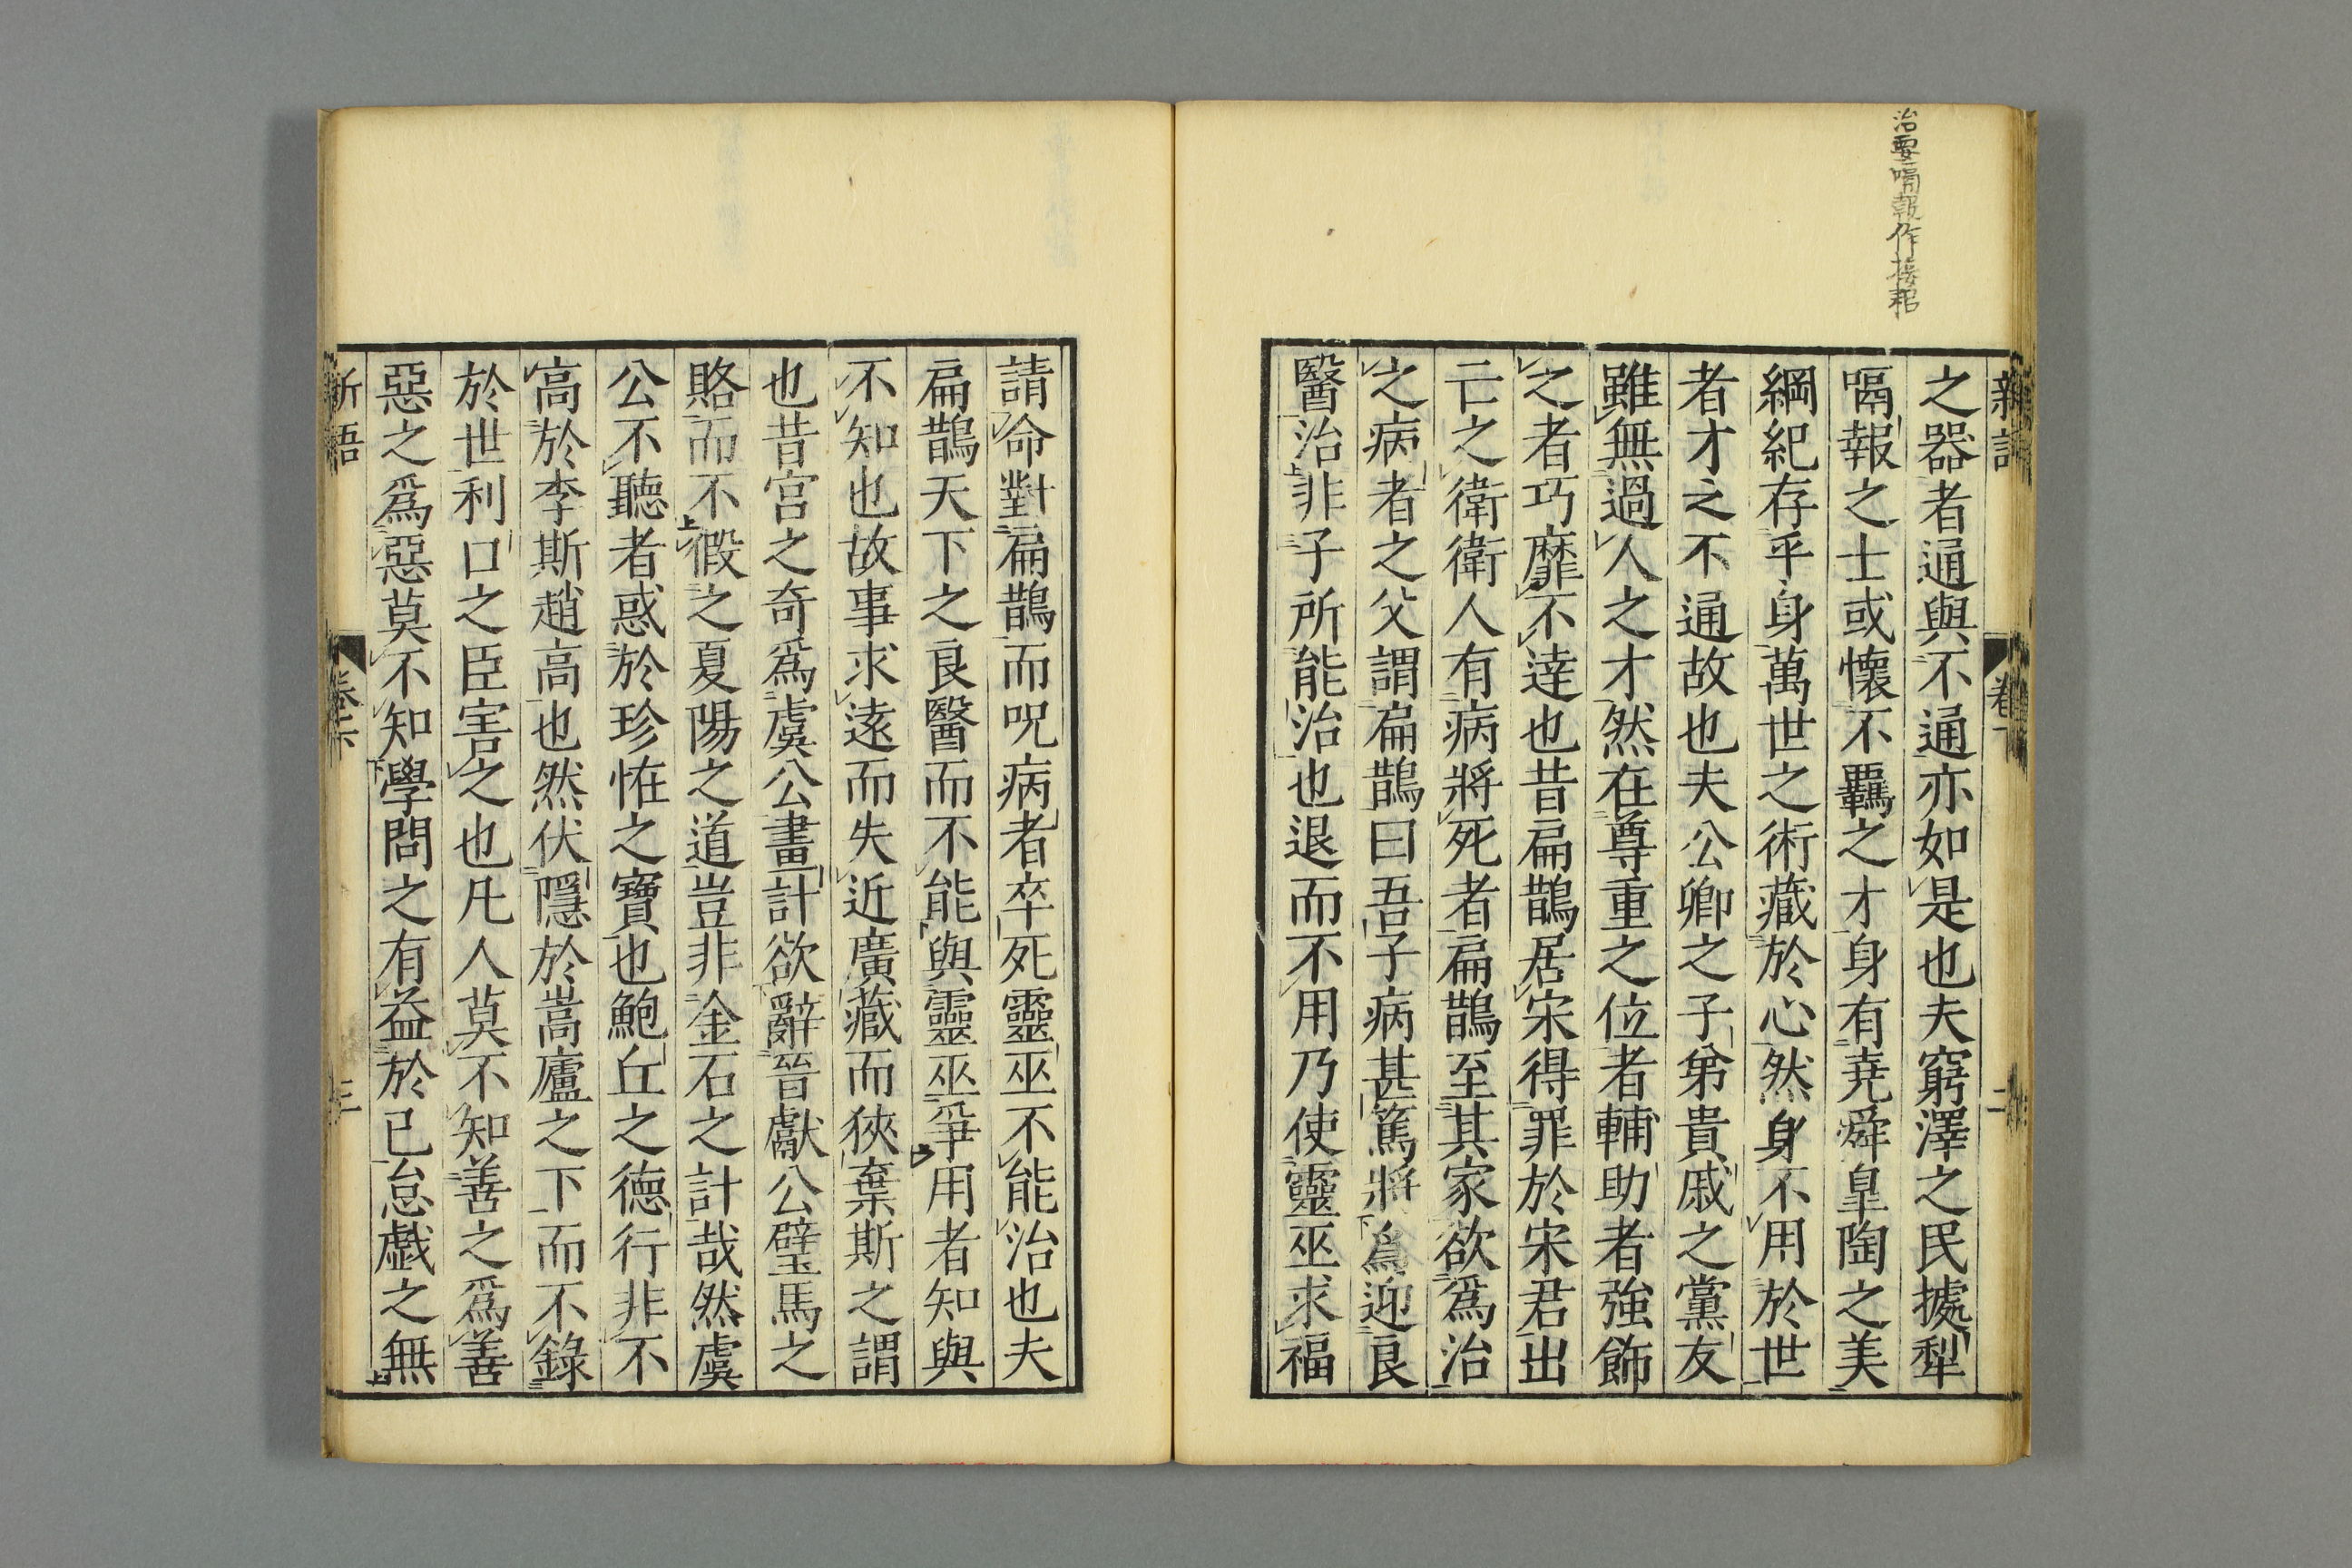 治要嗝報作接耜
新語 卷下 二
之器者通與不通亦如是也夫窮澤之民據犁
嗝報之士或懷不羈之才身有堯舜皐陶之美
綱紀存乎身萬世之術藏於心然身不用於世
者才之不通故也夫公卿之子弟貴戚之黨友
雖無過人之才然在尊重之位者輔助者強飾
之者巧靡不達也昔扁鵲居宋得罪於宋君出
亡之衛衛人有病將死者扁鵲至其家欲為治
之病者之父謂扁鵲曰吾子病甚篤將為迎良
醫治非子所能治也退而不用乃使靈巫求福
請命對扁鵲而呪病者卒死靈巫不能治也夫
扁鵲天下之良醫而不能與靈巫爭用者知與
不知也故事求遠而失近廣藏而狹棄斯之謂
也昔宮之奇爲虞公畫計欲辭晉獻公璧馬之
賂而不假之夏陽之道豈非金石之計哉然虞
公不聽者惑於珍恠之寶也鮑丘之德行非不
高於李斯趙高也然伏隱於嵩廬之下而不錄
於世利口之臣害之也凡人莫不知善之爲善
惡之爲惡莫不知學問之有益於已怠戲之無
新語 卷下 三